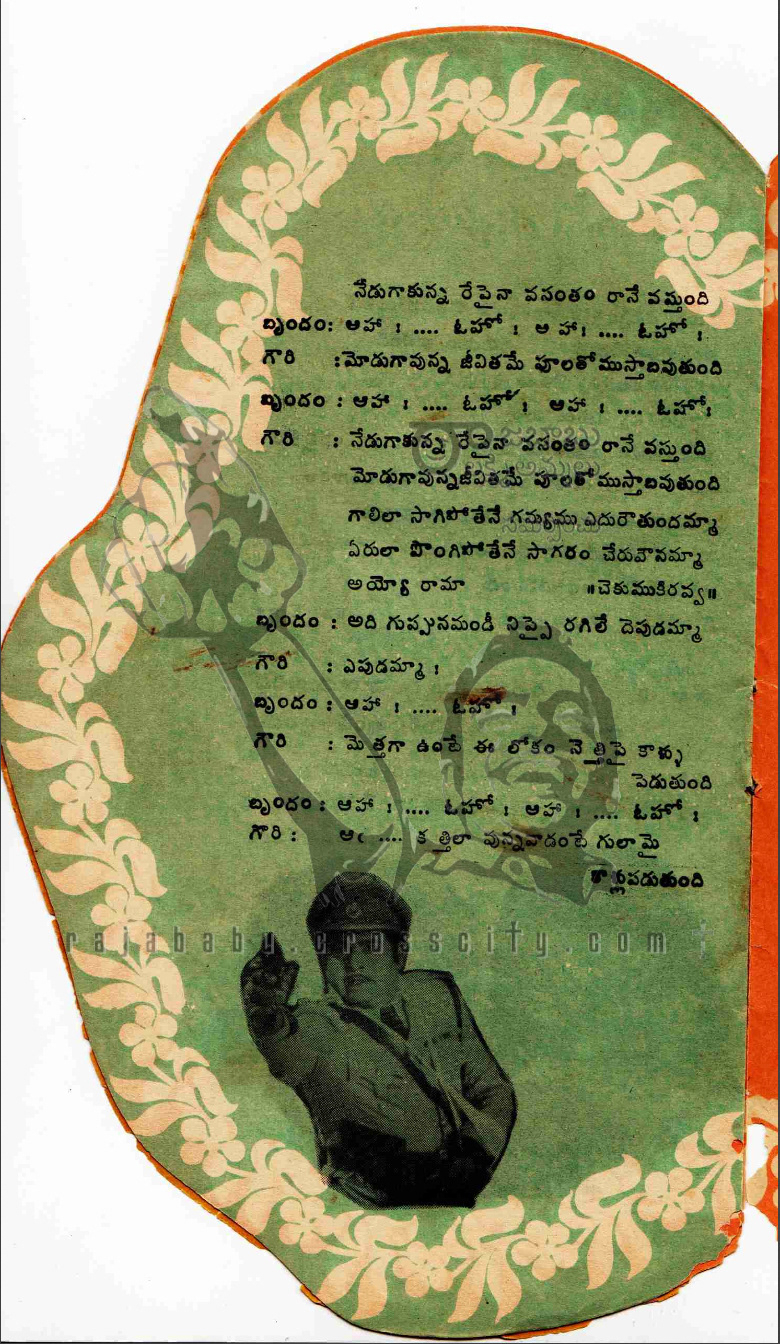 నేడుగాకున్న రేపైనా వసంతం రానే వస్తుంది
బృందం: ఆహా ! .... ఓహో ! ఆ హా! .... ఓహో !
గౌరి :మోడుగావున్న జీవితమే పూలతోముస్తాబవుతుంది
బృందం : ఆహా ! .... ఓహో ! ఆహా ! .... ఓహో!
గౌరి : నేడుగాకున్న రేపైనా వసంతం రానే వస్తుంది
మోడుగావున్నజీవితమే పూలతోముస్తాబవుతుంది
గాలిలా సాగిపోతేనే గమ్యము ఎదురౌతుందమ్మా
ఏరులా పొంగిపోతేనే సాగరం చేరువౌనమ్మా
అయ్యో రామా ॥చెకుముకిరవ్వ॥
బృందం : అది గుప్పునమండీ నిప్పై రగిలే దెపుడమ్మా
గౌరి : ఎపుడమ్మా !
బృందం : ఆహా ! .... ఓహో !
గౌరి : మెత్తగా ఉంటే ఈ లోకం నెత్తిపై కాళ్ళు
పెడుతుంది
బృందం : ఆహా ! .... ఓహో ! ఆహా ! .... ఓహో !
గౌరి : ఆఁ .... కత్తిలా వున్నవాడంటే గులామై
కాళ్లపడుతుంది
rajababy.crosscity.com